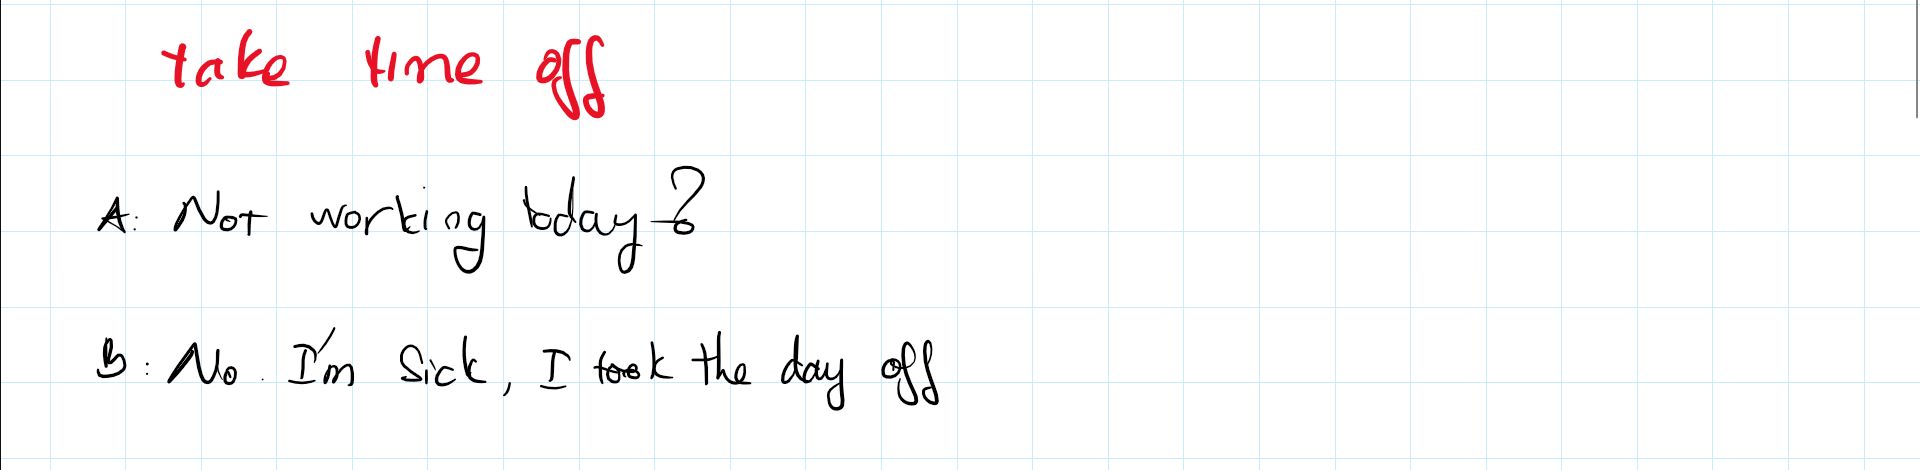 take time off
A: Not working today?
B: No. I'm Sick, I took the day off